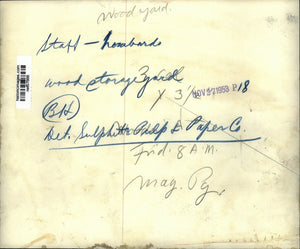 wood yard.
Staff - Lombardo
wood storage yard
X 3
NOV 27 1953 P 18
BH
Det. Sulphite Pulp & Paper Co.
Frid. 8 A.M.
Mag. Pg.